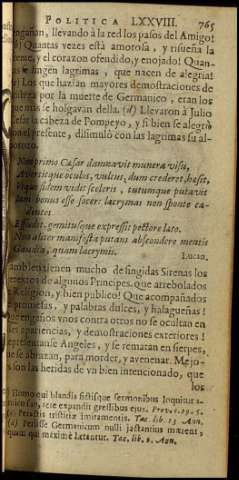 POLITICA LXXVIII. 765
engañan, llevando à la red los pasos del Amigo!
(b) Quantas vezes està amorosa, y risueña la
frente, y el corazon ofendido, y enojado! Quan-
tas se fingen lagrimas, que nacen de alegria!
(c) Los que hazian mayores demostraciones de
por la muerte de Germanico, eran los
que mas se holgavan della. (d) Llevaron à Julio
Cesar la cabeza de Pompeyo, y si bien se alegrò
con el presente, disimulò con las lagrimas su al-
borozo.
Non primo Cæsar damnavit munera visu,
Avertitque oculos, vultus, dum crederet, hæsit,
Utque fidem vidit sceleris, tutumque putavit
Iam bonus esse socer: lacrymas non sponte ca-
dentes
Effudit, gemitusque expressit pectore læto.
Non aliter manifesta putans abscondere mentis
Gaudia, quam lacrymis. Lucan.
Tambien tienen mucho de fingidas Sirenas los
pretextos de algunos Principes. que arrebolados
de Religion, y bien publico! Que acompañados
de promesas, y palabras dulces, y halagueñas!
Que engaños unos contra otros no se ocultan en
las apariencias, y demostraciones exteriores!
Representanse Angeles, y se rematan en sierpes,
que se abrazan, para morder, y avenenar. Mejo-
res son las heridas de un bien intencionado, que
los
(b) Homo qui blandis fictisque sermonibus loquitur a-
mico suo, rete expandit gressibus ejus. Prov. c. 29. 5.
(c) Peractis tristitiæ imitamentis. Tac. lib. 13. Ann.
(d) Periisse Germanicum nulli jactantius mærent,
quam qui maximè lætantur. Tac. lib. 2. Ann.